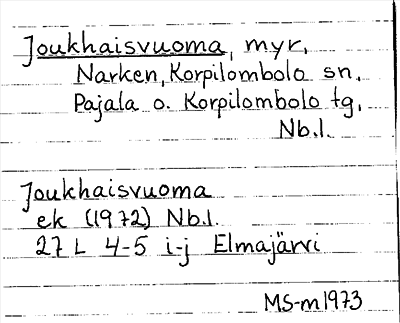 Joukhaisvuoma, myr,
Narken, Korpilombolo sn,
Pajala o. Korpilombolo tg,
Nb.l.
Joukhaisvuoma
ek (1972) Nb.l.
27 L 4-5 i-j Elmajärvi
MS-m1973